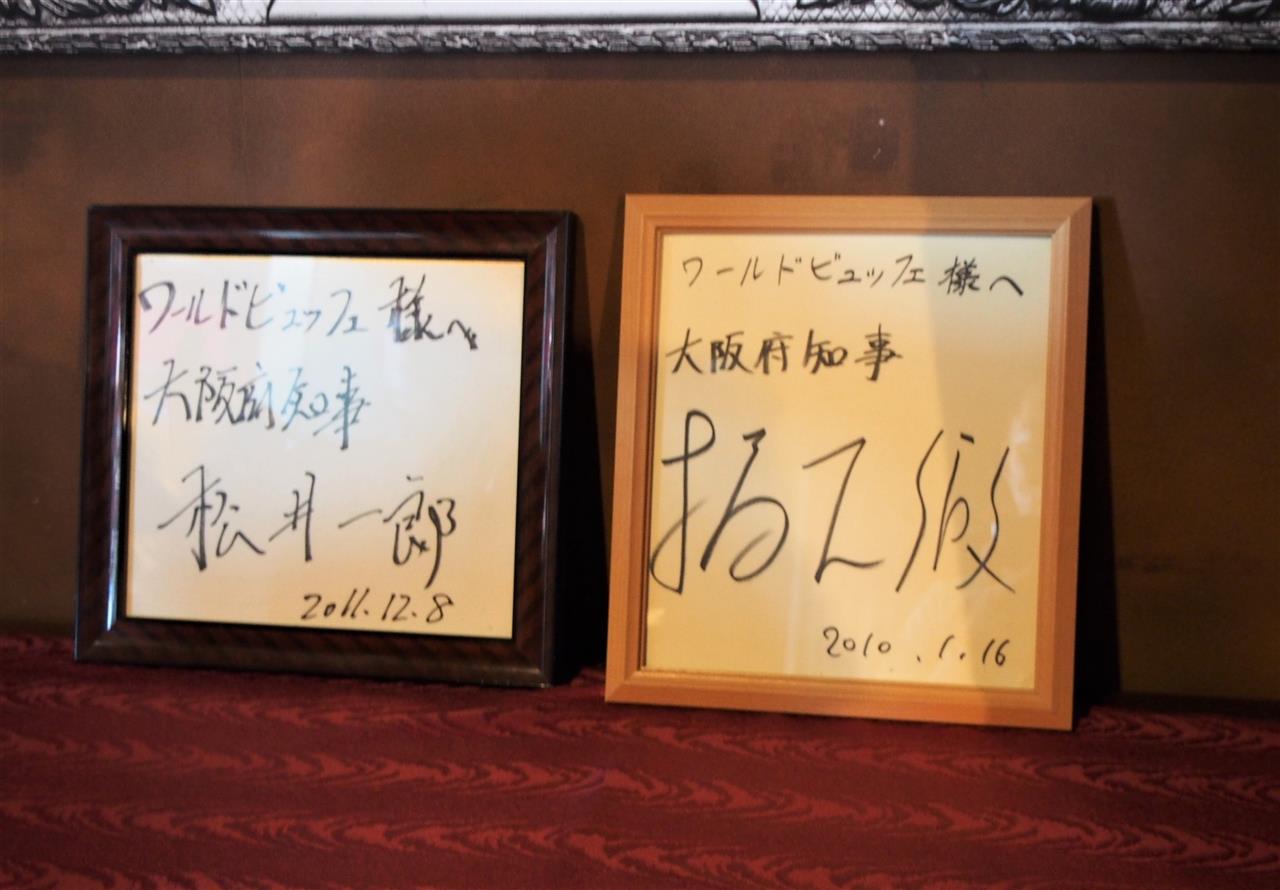 ワールドビュッフェ 様へ
大阪府知事
松井一郎
2011.12.8
ワールドビュッフェ 様へ
大阪府知事
橋下徹
2010.1.16